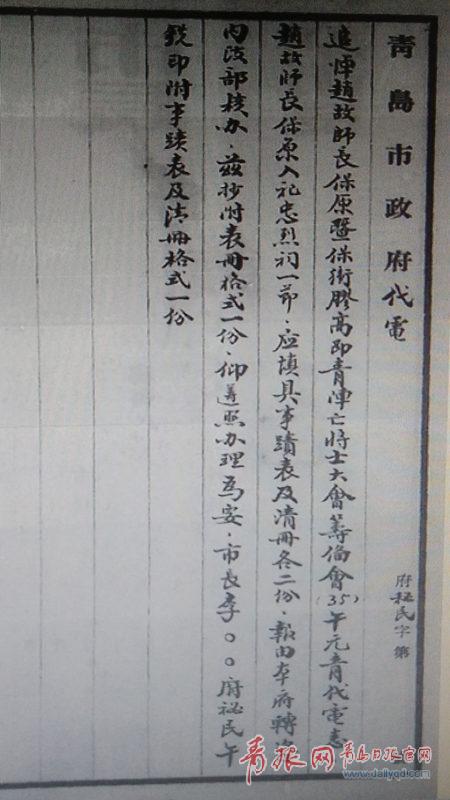 青島市政府代電
府秘民字第
追悼趙故師長保原暨保衛膠高即青陣亡將士大會籌備會(35)午元青代電悉
趙故師長保原入祀忠烈祠一節.应填具事蹟表及清冊各二份.報由本府轉
內政部核办.兹抄附表冊格式一份.仰遵照办理為要.市長李〇〇府祕民午
印附事蹟表及清冊格式一份
青报网
青岛日报官网
www.dailyqd.com